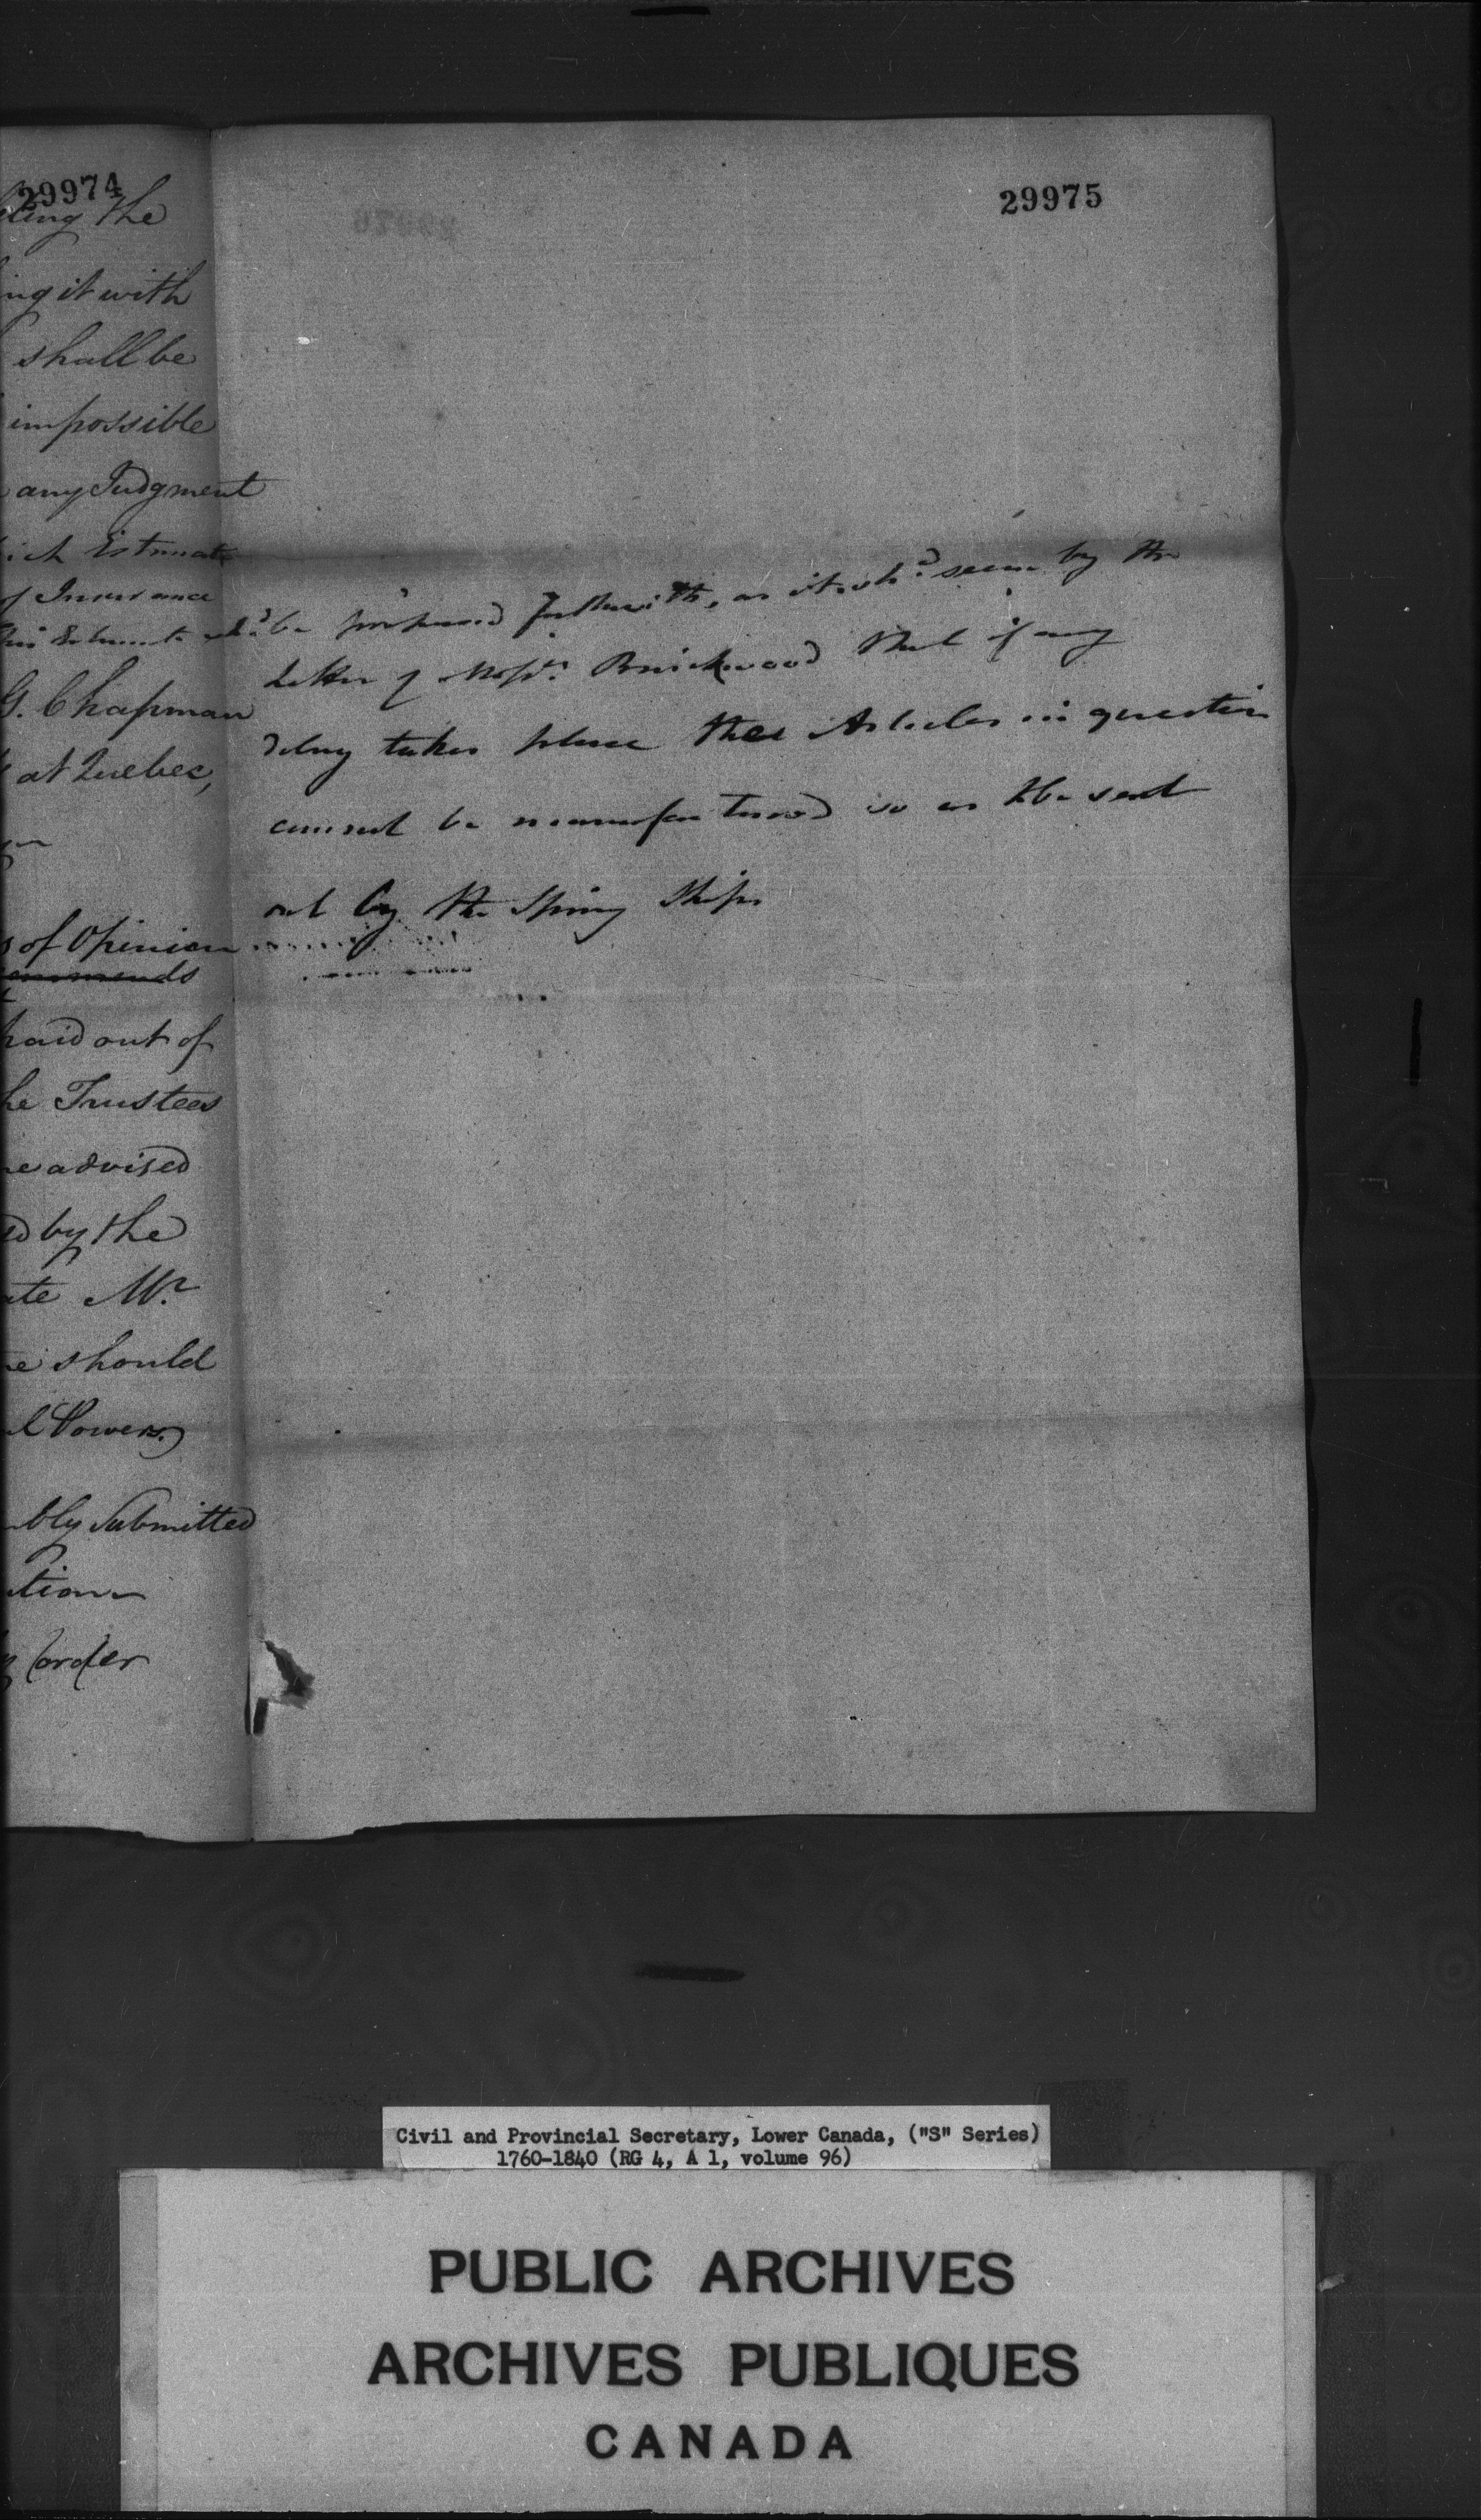 29974
ting the
ing it with
shall be
impossible
any Judgment
ich Estimate
of Insurance
this Estimate shd. be prepared forthwith, as it shd. seem by the
G. Chapman
at Quebec,
s of Opinion
commends
paid out of
he Trustees
e advised
ed by the
ate Mr.
e should
l Powers.
bly Submitted
tion
order
29975
Letter of Messrs. Brickwood that if any
delay takes place the Articles in question
cannot be manufactured so as to be sent
out by the Spring Ships
Civil and Provincial Secretary, Lower Canada, ("S" Series)
1760-1840 (RG 4, A 1, volume 96)
PUBLIC ARCHIVES
ARCHIVES PUBLIQUES
CANADA